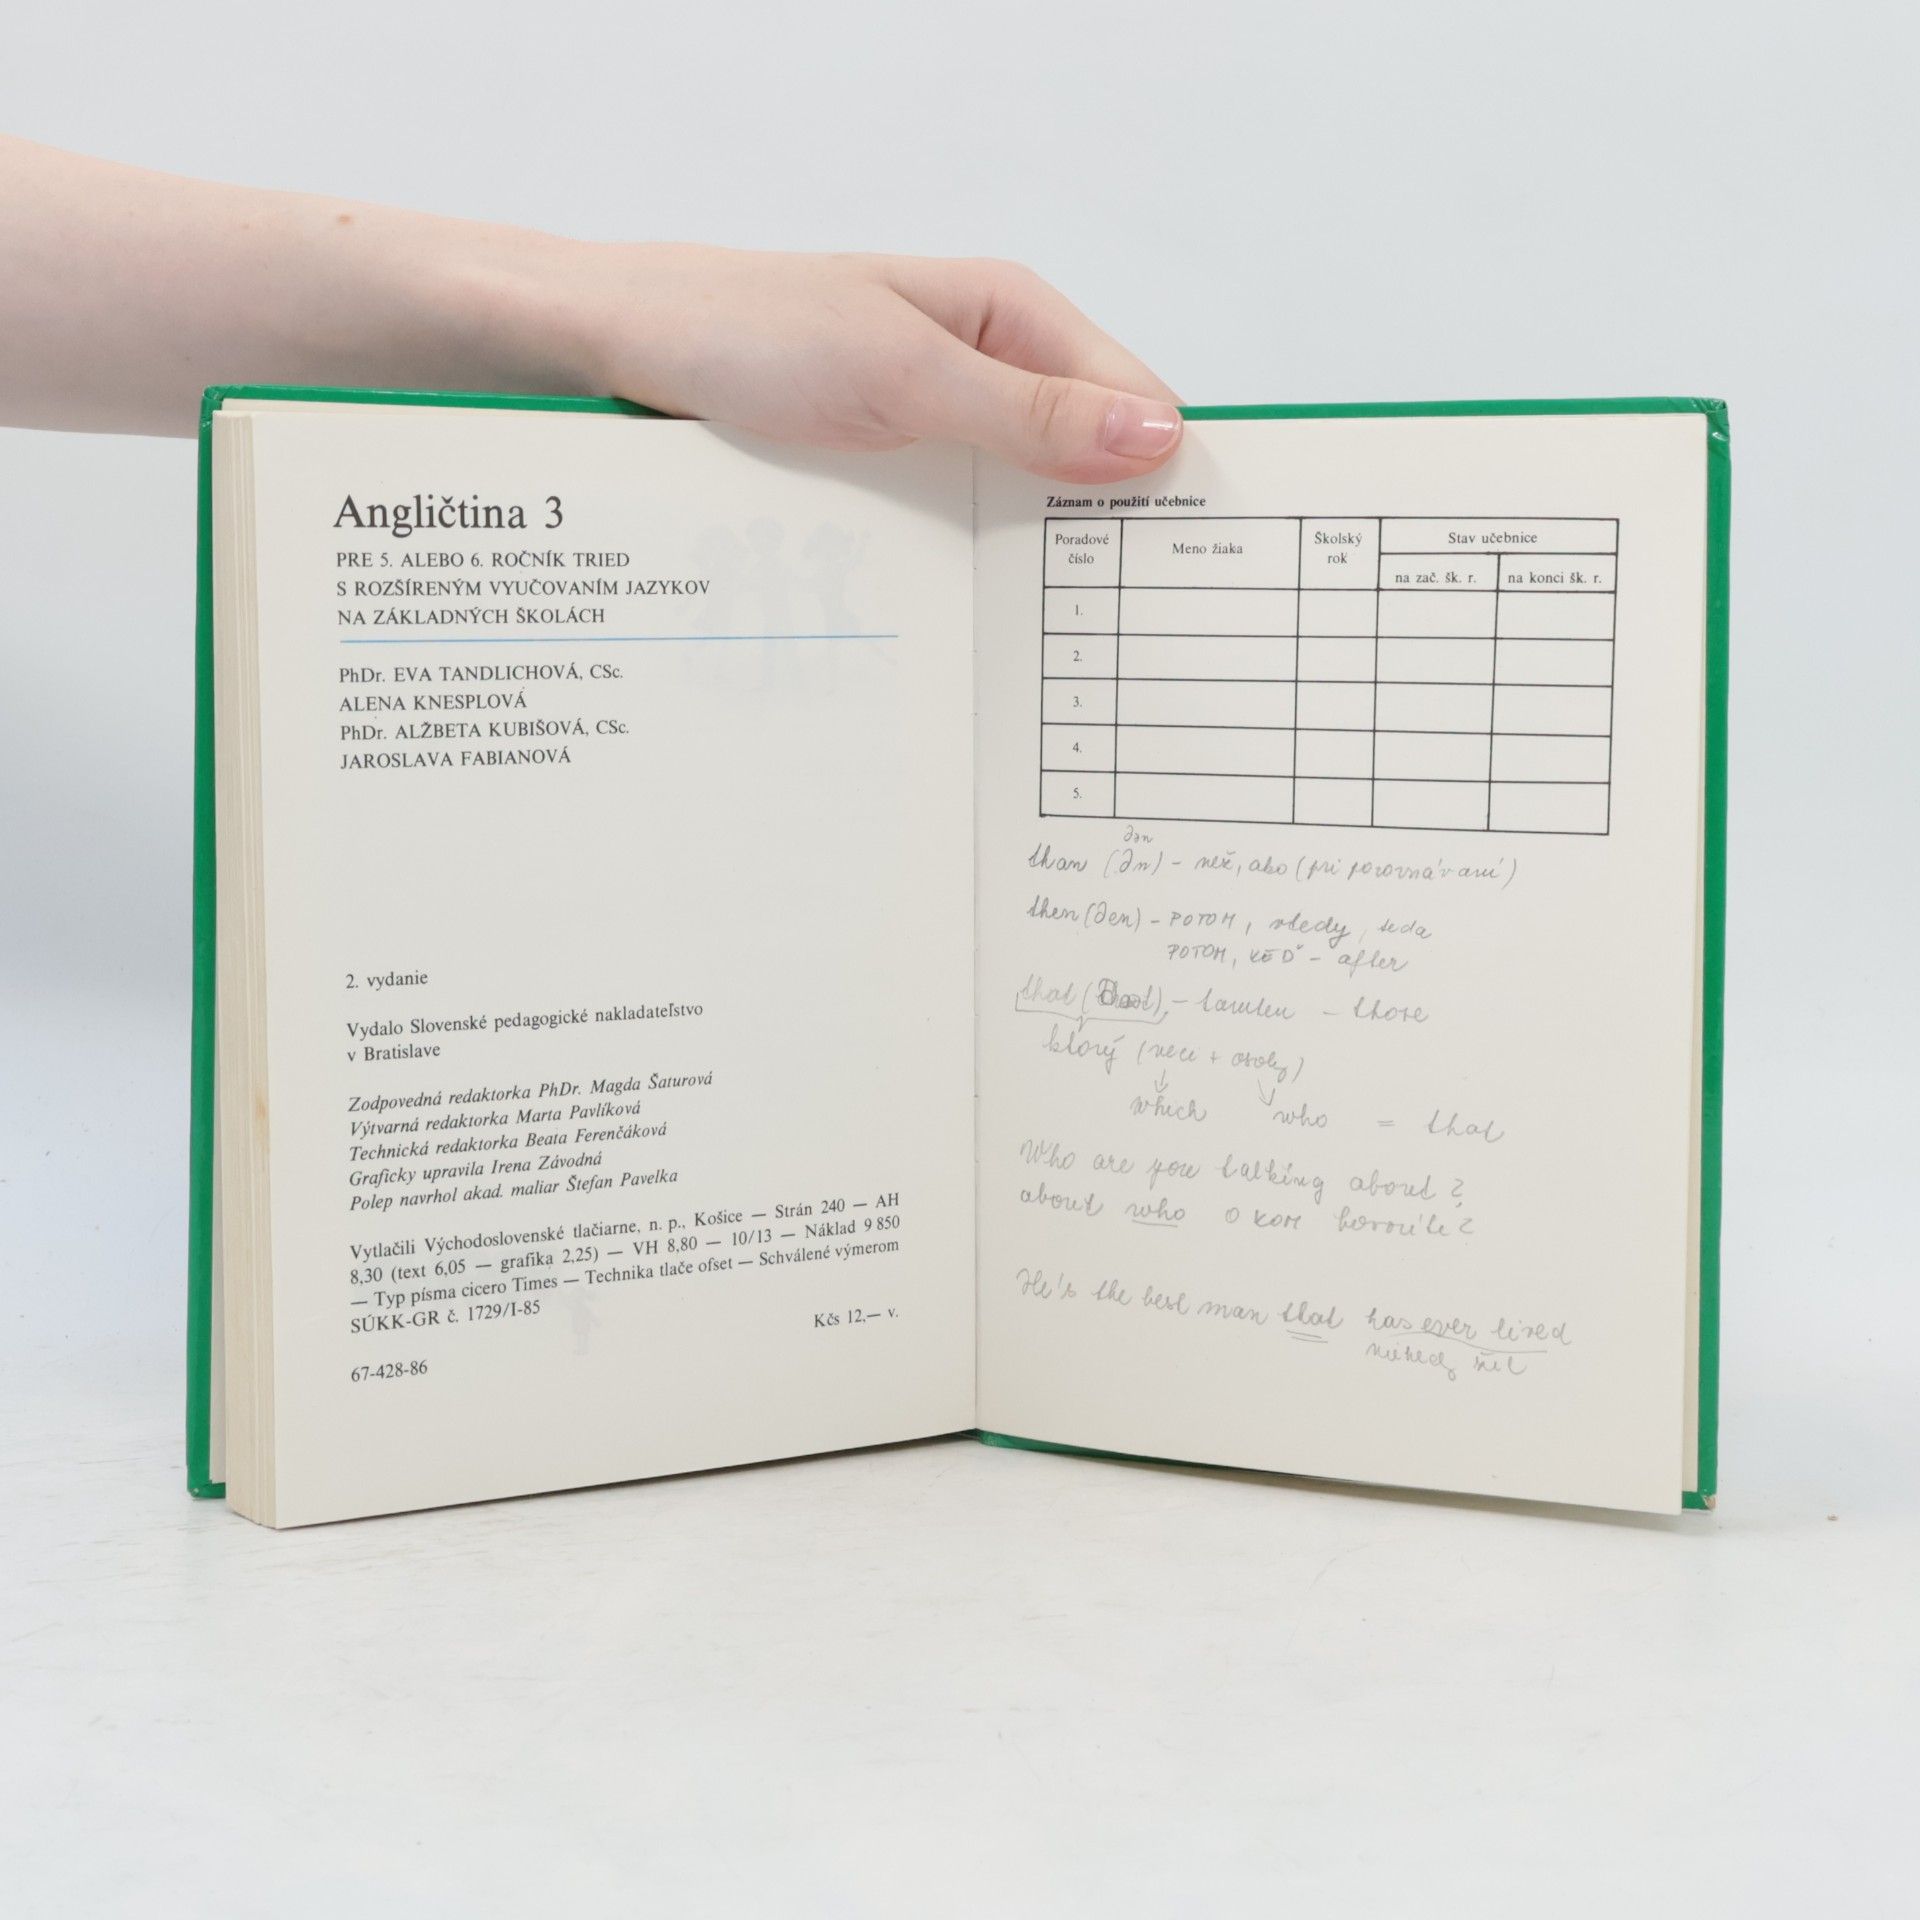 Angličtina 3
PRE 5. ALEBO 6. ROČNÍK TRIED
S ROZŠÍRENÝM VYUČOVANÍM JAZYKOV
NA ZÁKLADNÝCH ŠKOLÁCH
PhDr. EVA TANDLICHOVÁ, CSc.
ALENA KNESPLOVÁ
PhDr. ALŽBETA KUBIŠOVÁ, CSc.
JAROSLAVA FABIANOVÁ
2. vydanie
Vydalo Slovenské pedagogické nakladateľstvo
v Bratislave
Zodpovedná redaktorka PhDr. Magda Šaturová
Výtvarná redaktorka Marta Pavlíková
Technická redaktorka Beata Ferenčáková
Graficky upravila Irena Závodná
Polep navrhol akad. maliar Štefan Pavelka
Vytlačili Východoslovenské tlačiarne, n. p., Košice — Strán 240 — AH
8,30 (text 6,05 — grafika 2,25) — VH 8,80 — 10/13 — Náklad 9 850
— Typ písma cicero Times — Technika tlače ofset — Schválené výmerom
SÚKK-GR č. 1729/I-85
Kčs 12,— v.
67-428-86
Záznam o použití učebnice
Poradové číslo Meno žiaka Školský rok Stav učebnice
na zač. šk. r. na konci šk. r.
1.
2.
3.
4.
5.
ðən
than (ðn) - než, ako (pri porovnávaní)
then (ðen) - POTOM, vtedy, teda
POTOM, KEĎ - after
that - tamten - those
ktorý (veci + osoby)
which who = that
Who are you talking about?
about who O KOM hovoríte?
He's the best man that has ever lived
niekedy žil